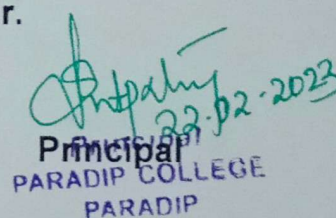 r.
22.02.2023
Principal
Principal
PARADIP COLLEGE
PARADIP